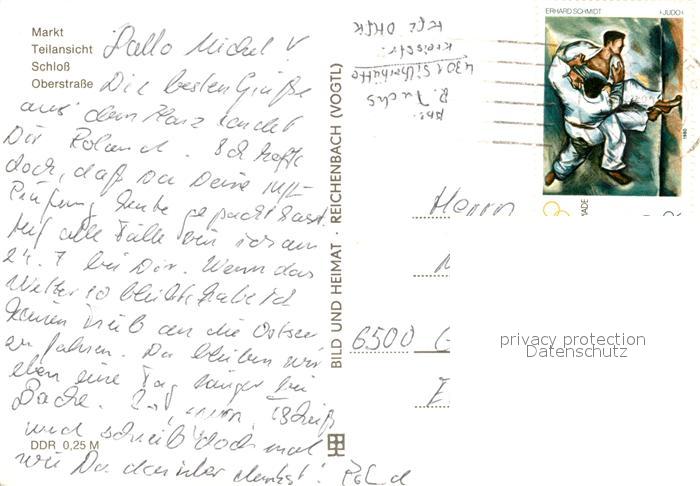 Markt
Teilansicht
Schloß
Oberstraße
Hallo Michel!
Die besten Grüße
aus dem Harz sendet
Dir Roland. Ich hoffe
doch, daß Du Deine
Prüfung heute gepackt hast.
Auf alle Fälle bin ich am
24.7 bei Dir. Wenn das
Wetter so bleibt habe ich
keinen Trieb an die Ostsee
zu fahren. Da bleiben wir
eben eine Tag länger bei
und schreib doch mal
wie Du darüber denkst!
DDR 0,25 M
BILD UND HEIMAT · REICHENBACH (VOGTL)
Abs.
R. Fuchs
4301 Silberhütte
ERHARD SCHMIDT ›JUDO‹
1980
Herrn
6500 G
privacy protection
Datenschutz